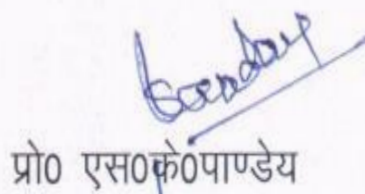 प्रो0 एस0के0पाण्डेय